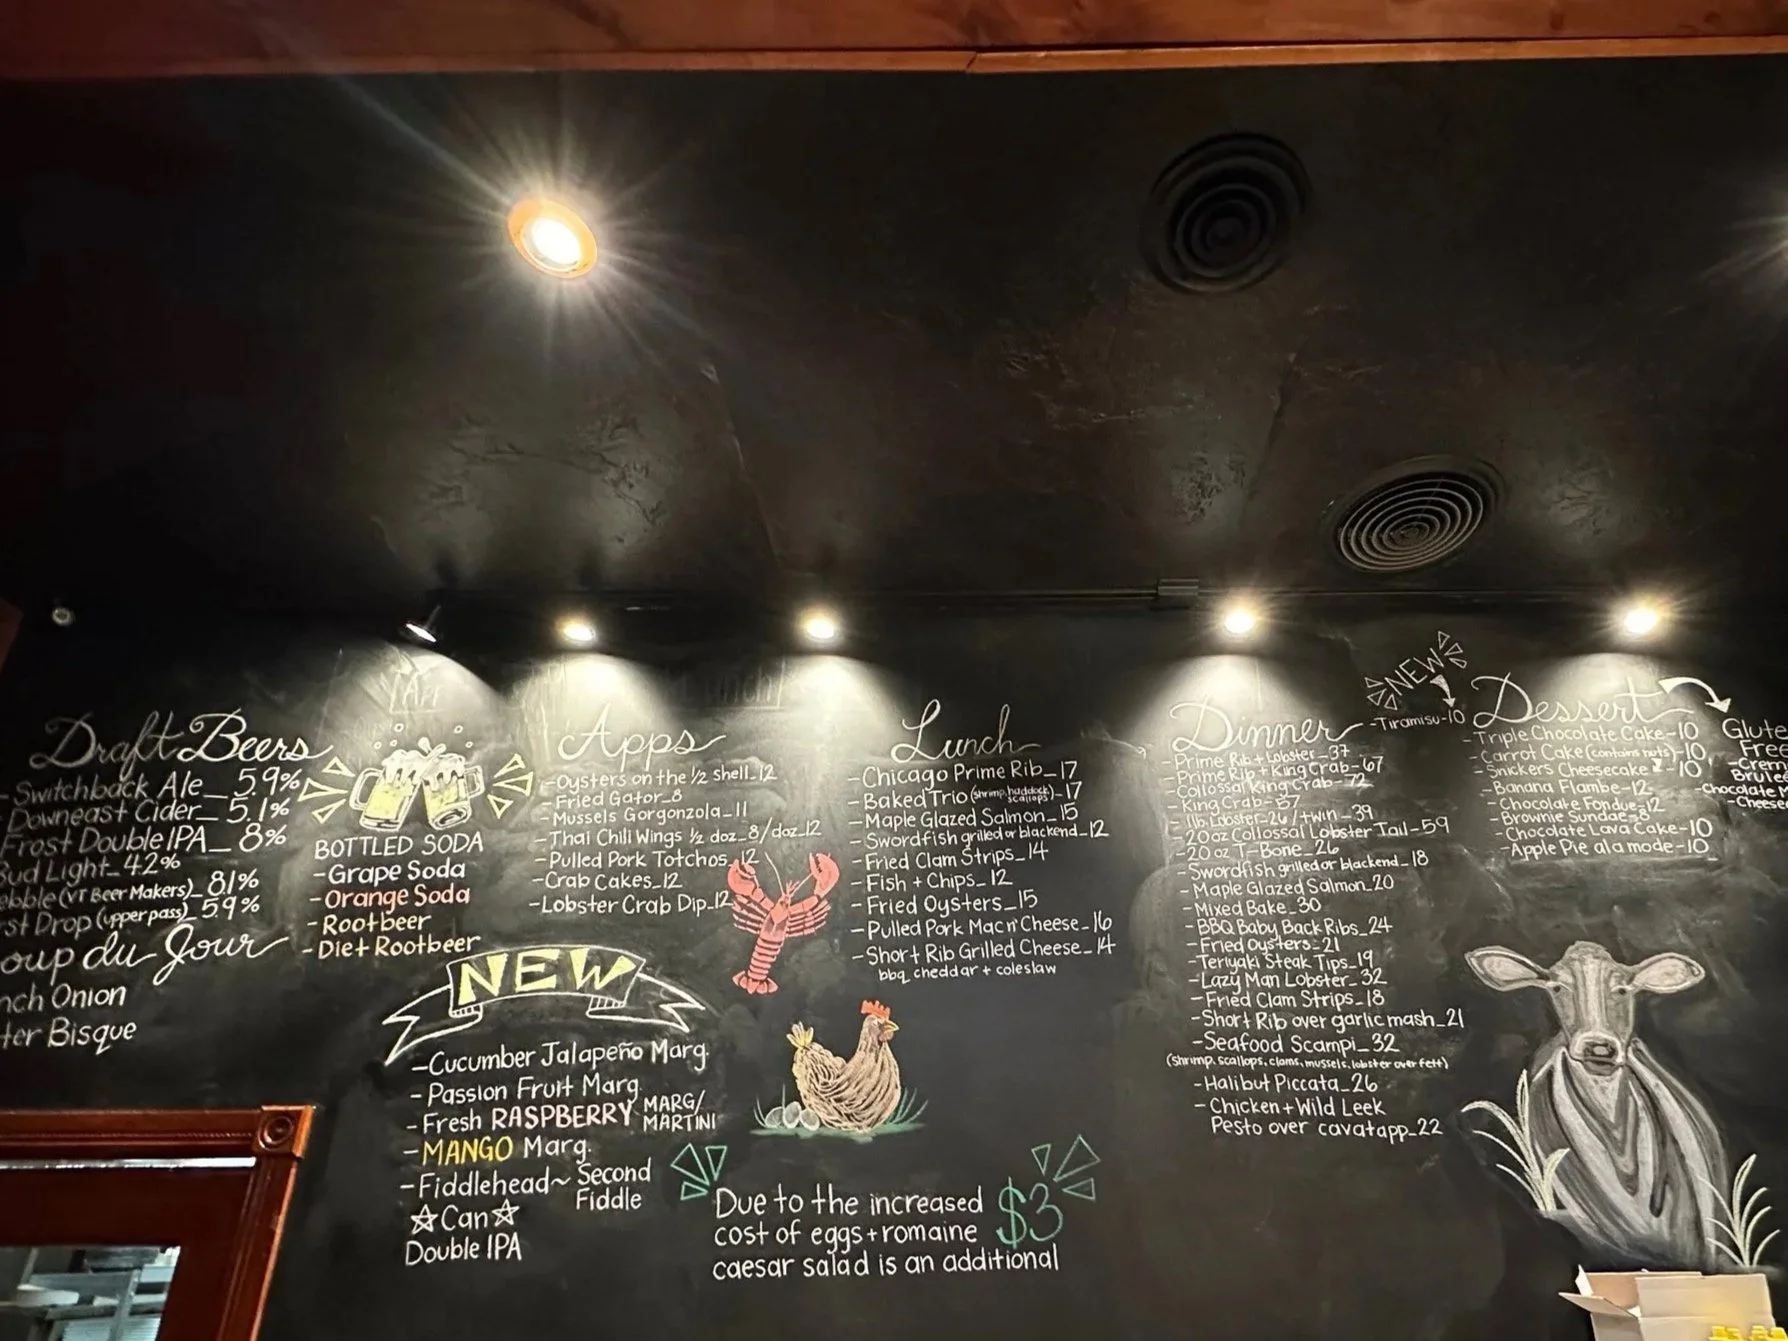 Draft Beers
- Switchback Ale_ 5.9%
Downeast Cider_ 5.1%
Frost Double IPA_ 8%
Bud Light_ 4.2%
(VT Beer Makers)_ 8.1%
Drop (upper pass)_ 5.9%
du Jour
Onion
Bisque
BOTTLED SODA
- Grape Soda
- Orange Soda
- Rootbeer
- Diet Rootbeer
NEW
- Cucumber Jalapeño Marg.
- Passion Fruit Marg.
- Fresh RASPBERRY MARG/
MARTINI
- MANGO Marg.
- Fiddlehead~ Second
Fiddle
☆Can☆
Double IPA
Apps
- Oysters on the 1/2 shell_12
- Fried Gator_8
- Mussels Gorgonzola_11
- Thai Chili Wings 1/2 doz_8/doz_12
- Pulled Pork Totchos_12
- Crab Cakes_12
- Lobster Crab Dip_12
Lunch
- Chicago Prime Rib_17
- Baked Trio (shrimp, haddock, scallops)-17
- Maple Glazed Salmon_15
- Swordfish grilled or blackend_12
- Fried Clam Strips_14
- Fish + Chips_12
- Fried Oysters_15
- Pulled Pork Mac n' Cheese_16
- Short Rib Grilled Cheese_14
bbq, cheddar + coleslaw
Due to the increased
cost of eggs + romaine $3
caesar salad is an additional
Dinner
- Prime Rib + Lobster_37
- Prime Rib + King Crab-67
- Collossal King Crab-72
- King Crab-57
- 1 lb Lobster-26/twin_39
- 20 oz Collossal Lobster Tail-59
- 20 oz T-Bone_26
- Swordfish grilled or blackend_18
- Maple Glazed Salmon_20
- Mixed Bake_30
- BBQ Baby Back Ribs_24
- Fried Oysters-21
- Teriyaki Steak Tips_19
- Lazy Man Lobster_32
- Fried Clam Strips_18
- Short Rib over garlic mash_21
- Seafood Scampi_32
(shrimp, scallops, clams, mussels, lobster over fett)
- Halibut Piccata_26
- Chicken + Wild Leek
Pesto over cavatapp_22
NEW
- Tiramisu-10
Dessert
- Triple Chocolate Cake-10
- Carrot Cake (contains nuts)-10
- Snickers Cheesecake-10
- Banana Flambe-12
- Chocolate Fondue-12
- Brownie Sundae-8
- Chocolate Lava Cake-10
- Apple Pie ala mode-10
Free
- Chocolate